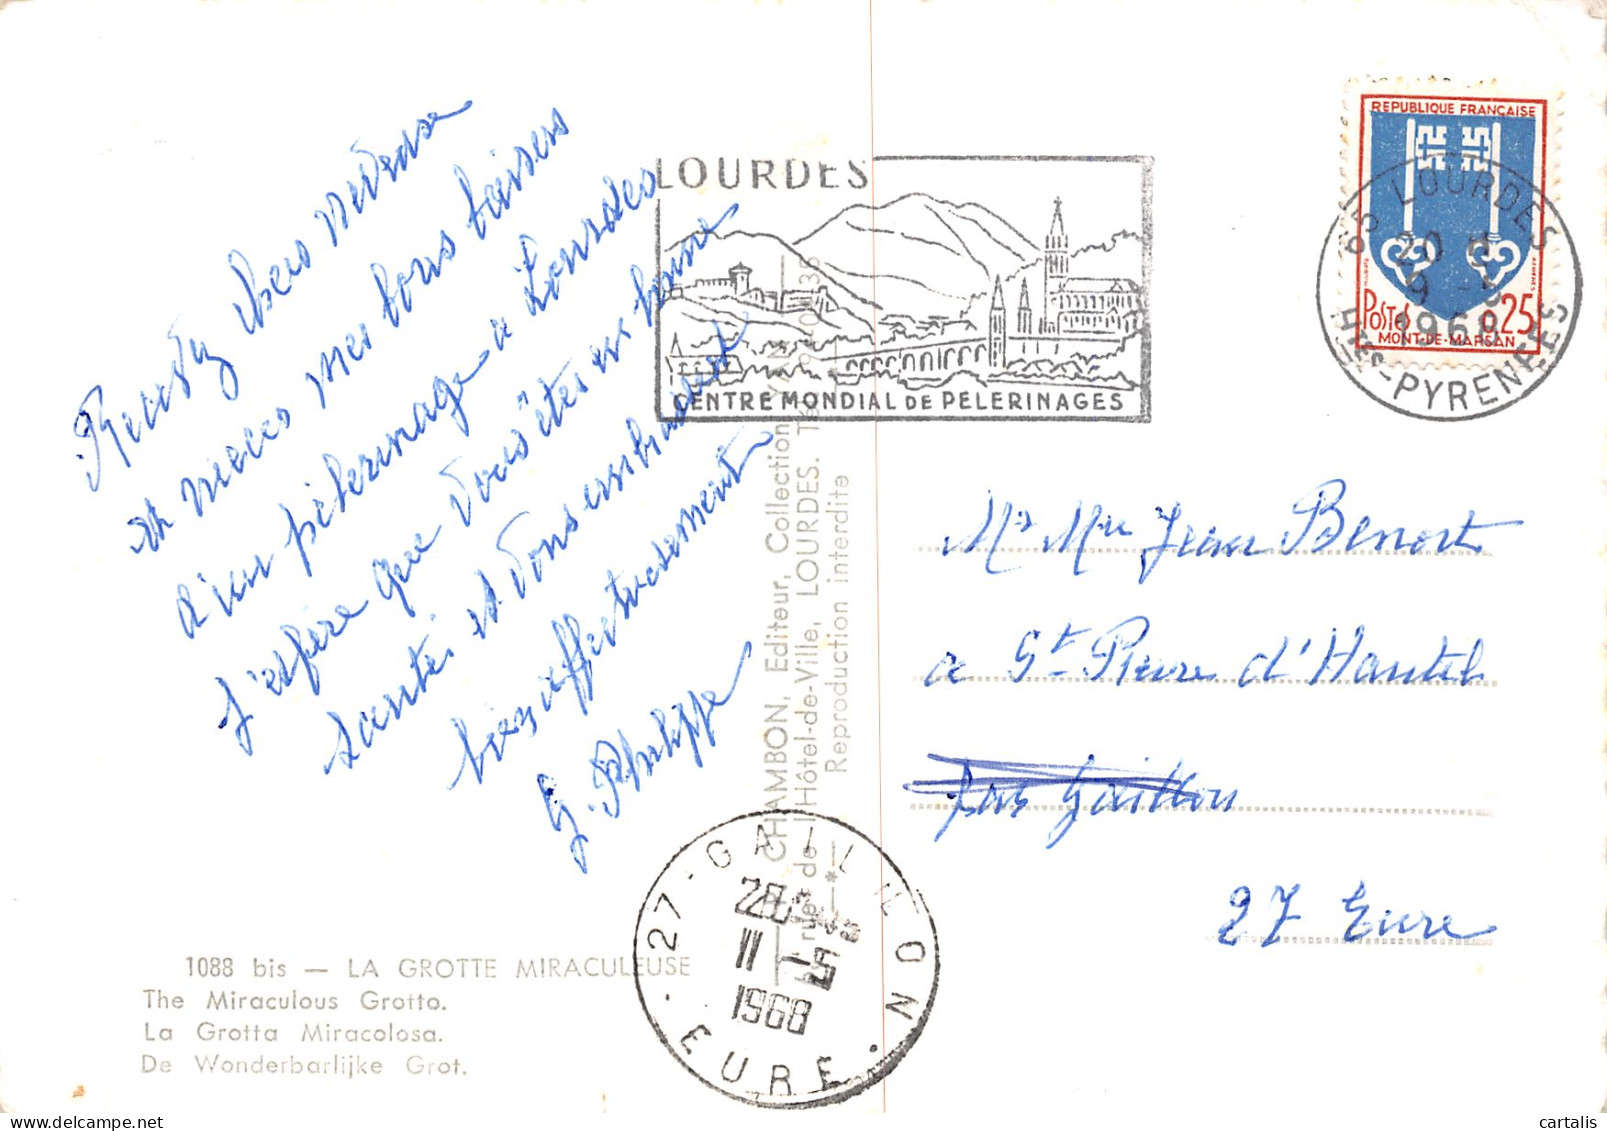 Recevez chers neveux
et nieces mes bons baisers
d'un pélerinage a Lourdes
J'espère que vous êtes en bonne
santé et vous embrassent
bien affectueusement
G. Philippe
1088 bis — LA GROTTE MIRACULEUSE
The Miraculous Grotto.
La Grotta Miracolosa.
De Wonderbarlijke Grot.
CHAMBON, Editeur, Collection
rue de l'Hôtel-de-Ville, LOURDES.
Reproduction interdite
LOURDES
CENTRE MONDIAL DE PELERINAGES
REPUBLIQUE FRANÇAISE
POSTES 0,25
MONT-DE-MARSAN
65 LOURDES
20 H
9 - 5
1968
HTES-PYRENEES
Mr Mme Jean Benoit
a St Pierre d'Hautel
par Gaillon
27 Eure
27 - GAILLON
11 - 5
1968
EURE
cartalis
delcampe.net